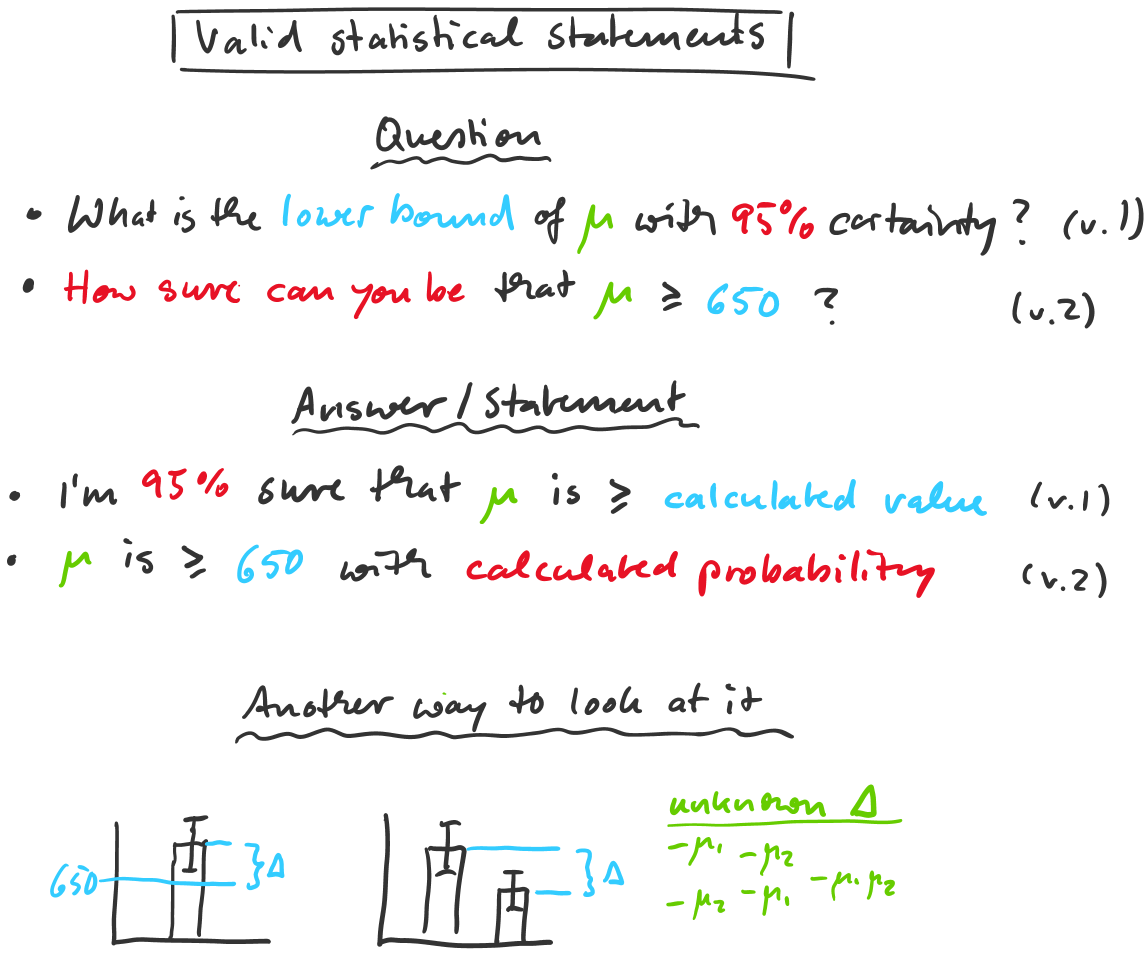 Valid statistical statements
Question
• What is the lower bound of μ with 95% certainty? (v.1)
• How sure can you be that μ ≥ 650 ? (v.2)
Answer / Statement
• I'm 95% sure that μ is ≥ calculated value (v.1)
• μ is ≥ 650 with calculated probability (v.2)
Another way to look at it
650
Δ
Δ
unknown Δ
-μ₁ -μ₂
-μ₂ -μ₁ -μ₁μ₂